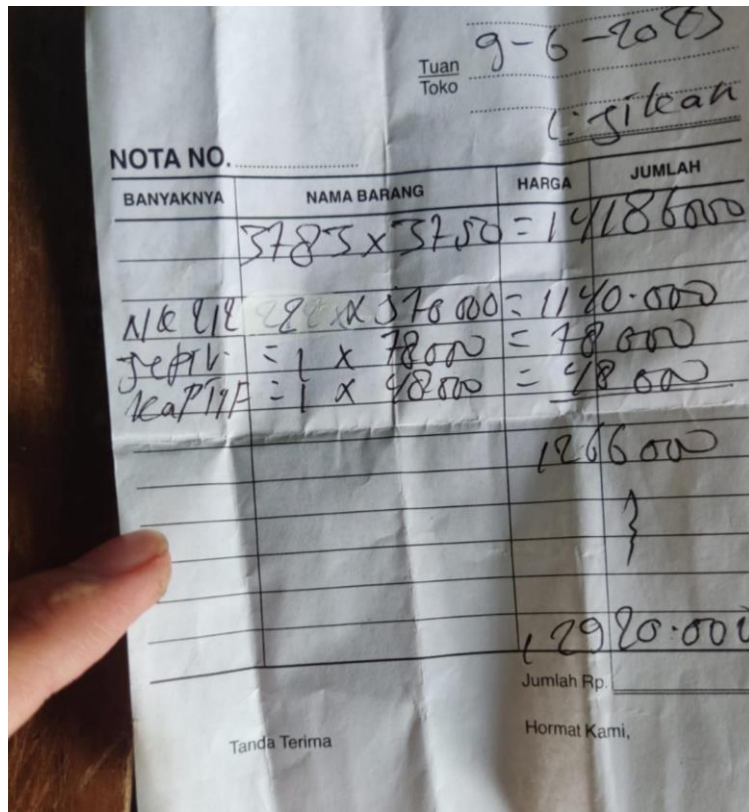 Tuan
Toko
9-6-2023
NOTA NO.
BANYAKNYA NAMA BARANG HARGA JUMLAH
3783 x 3750 = 14186000
x 570 000 = 1140.000
= 1 x 78000 = 78 000
= 1 x 48000 = 48 000
1266 000
12920.000
Jumlah Rp.
Tanda Terima
Hormat Kami,